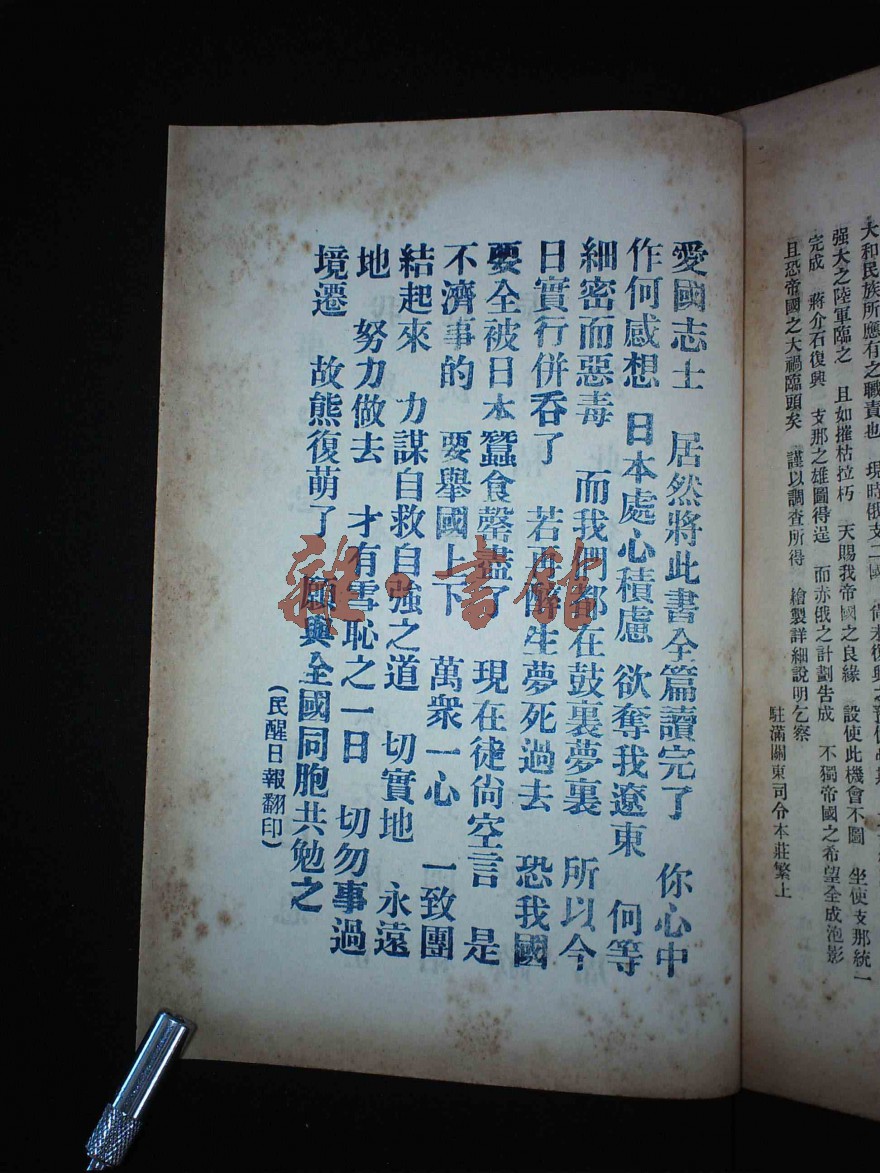 大和民族所應有之職責也 現時俄支二國 尚未復興之
强大之陸軍臨之 且如摧枯拉朽 天賜我帝國之良緣 設使此機會不圖 坐使支那統一
完成 蔣介石復興 支那之雄圖得逞 而亦俄之計劃告成 不獨帝國之希望全成泡影
且恐帝國之大禍臨頭矣 謹以調查所得 繪製詳細說明乞察
駐滿關東司令本莊繁上
愛國志士 居然將此書全篇讀完了 你心中
作何感想 日本處心積慮 欲奪我遼東 何等
細密而惡毒 而我們都在鼓裏夢裏 所以今
日實行併吞了 若再醉生夢死過去 恐我國
要全被日本蠶食罄盡了 現在徒尙空言 是
不濟事的 要舉國上下 萬衆一心 一致團
結起來 力謀自救自強之道 切實地 永遠
地 努力做去 才有雪恥之一日 切勿事過
境遷 故熊復萌了 願與全國同胞共勉之
(民醒日報翻印)
雜·書館